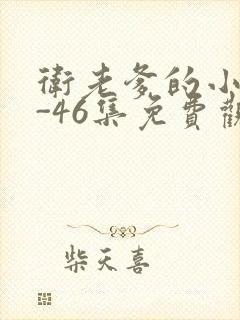 衛老爹的小
-46集免費觀
柴天喜